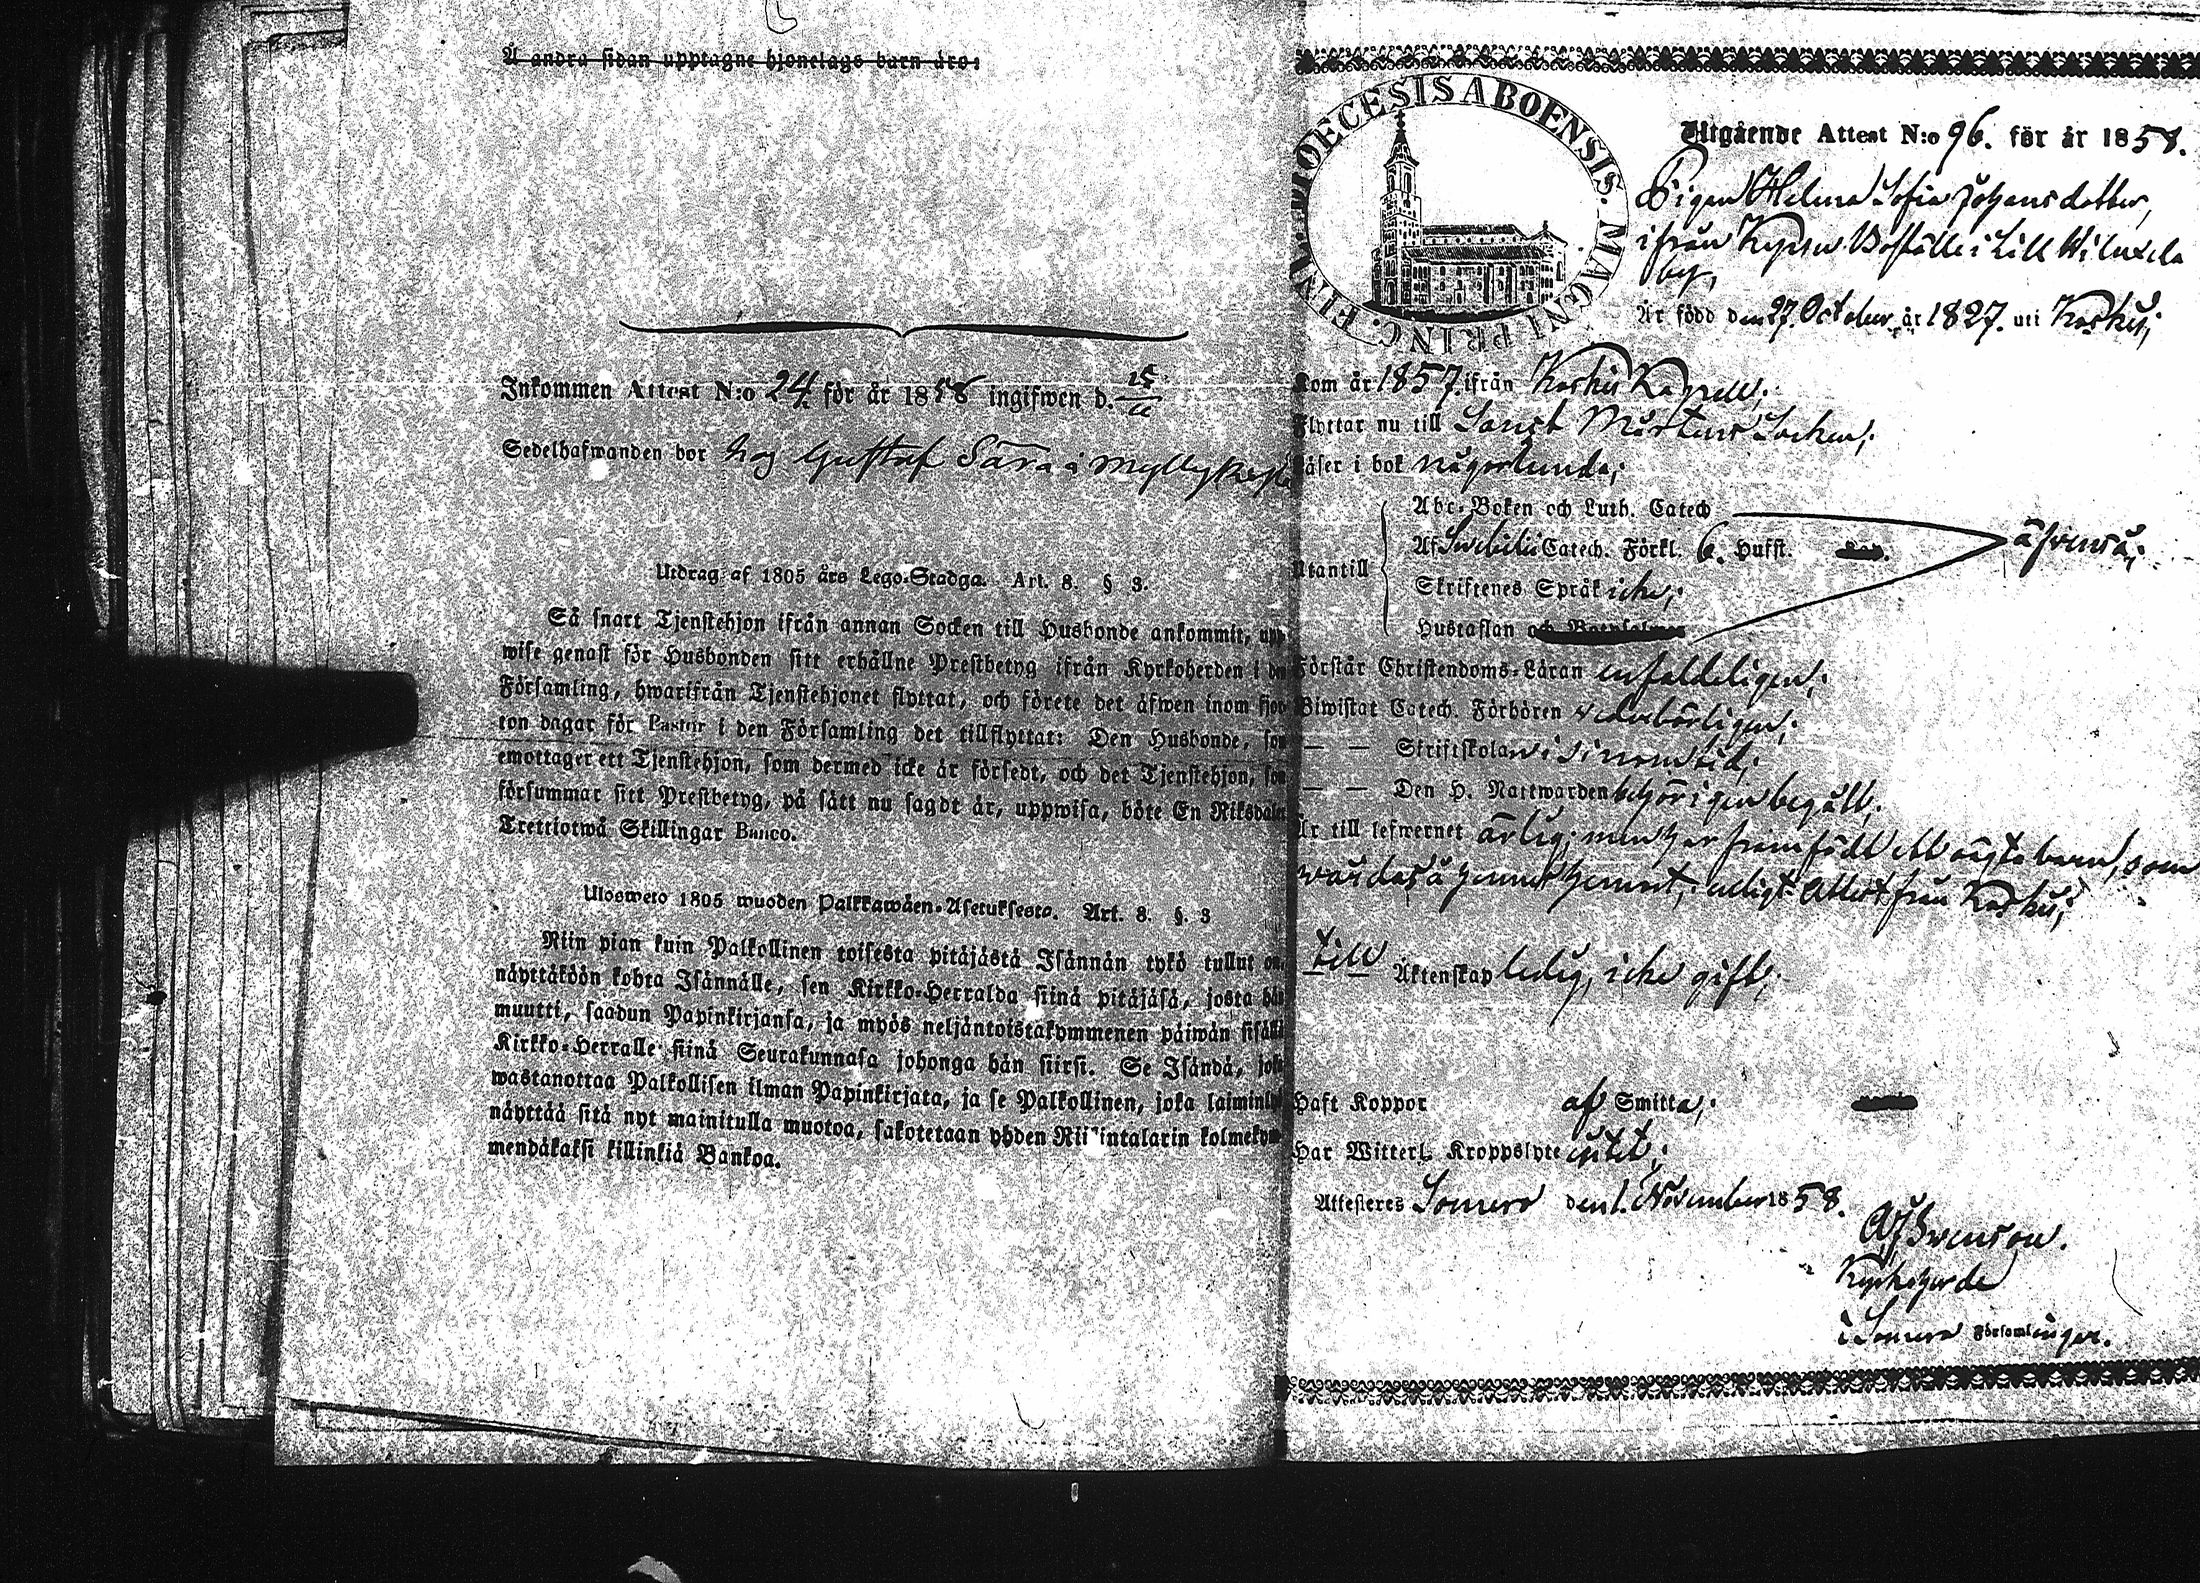 Å andra sidan upptagne hjonelags barn äro:
Inkommen Attest N:o 24. för år 1858 ingifwen d. 25/11
Sedelhafwanden bor hos Gustaf Sära i Myllykyl
Utdrag af 1805 års Lego-Stadga. Art. 8. § 3.
Så snart Tjenstehjon ifrån annan Socken till Husbonde ankommit, upp
wise genast för Husbonden sitt erhållne Prestbetyg ifrån Kyrkoherden i den
Församling, hwarifrån Tjenstehjonet flyttat, och förete det äfwen inom fjor
ton dagar för Pastor i den Församling det tillflyttat: Den Husbonde, som
emottager ett Tjenstehjon, som dermed icke är försedt, och det Tjenstehjon, som
försummar sitt Prestbetyg, på sätt nu sagdt är, uppwisa, böte En Riksdaler
Trettiotwå Skillingar Banco.
Ulosweto 1805 wuoden Palkkawäen-Asetuksesta. Art. 8. §. 3
Niin pian kuin Palkollinen toisesta pitäjästä Isännän tykö tullut on,
näyttäköön kohta Isännälle, sen Kirkko-Herralda siinä pitäjäsä, josta hän
muutti, saadun Papinkirjansa, ja myös neljäntoistakymmenen päiwän sisällä
Kirkko-Herralle siinä Seurakunnasa johonga hän siirsi. Se Isändä, joka
wastanottaa Palkollisen ilman Papinkirjata, ja se Palkollinen, joka laiminly
näyttää sitä nyt mainitulla muotoa, sakotetaan yhden Riikintalarin kolmekym
mendäkaksi killinkiä Bankoa.
DIOECESIS ABOENSIS. MAGNI PRINC. FIN
Utgående Attest N:o 96. för år 1858.
Pigan Helena Sofia Johansdotter,
ifrån Boställe i Lill Wiluxela
by,
Är född den 27. October år 1827. uti Koskis;
Kom år 1857. ifrån Koskis Kapell;
Flyttar nu till Sanct Mårtens Socken;
Läser i bok någorlunda;
Utantill
Abc-Boken och Luth. Catech
Af Svebilii Catech. Förkl. 6. Hufst.
äfvenså;
Skriftenes Språk icke;
Hustaflan och Botpsalmer
Förstår Christendoms-Läran enfaldeligen;
Biwistat Catech. Förhören vederbörligen;
— — Skriftskolan i sinom tid;
— — Den H. Nattwarden behörigen begått;
Är till lefwernet ärlig; men har framfödt ett oägta barn, som
vårdas å hennes hemort, enligt Attest från Koskis;
till Äktenskap ledig, icke gift;
Haft Koppor af Smitta;
Har Witterl. Kroppslyte intet;
Attesteres Somero den 1. November 1858.
Svenson.
Kyrkoherde
i Somero Församlingar.